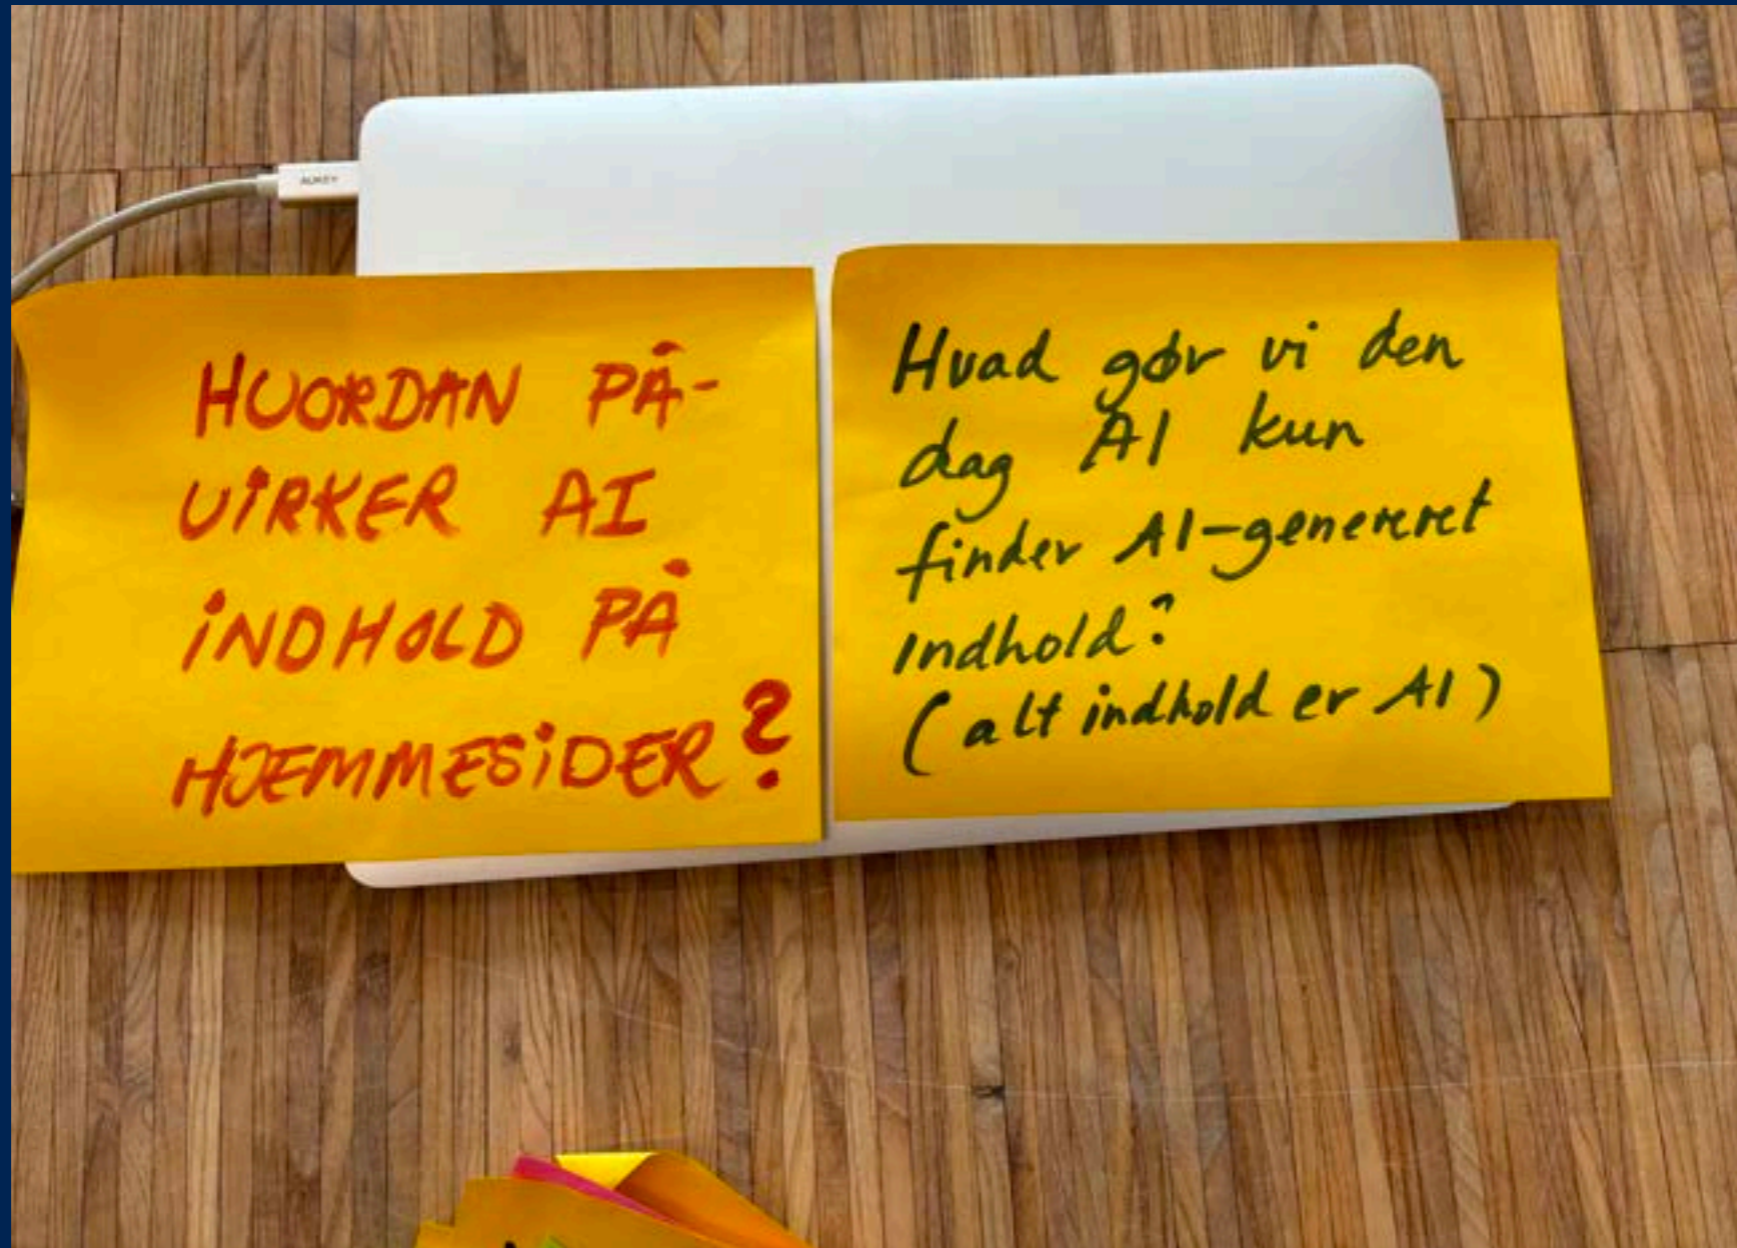 AUKEY
HVORDAN PÅ-
VIRKER AI
INDHOLD PÅ
HJEMMESIDER?
Hvad gør vi den
dag AI kun
finder AI-genereret
indhold?
(alt indhold er AI)